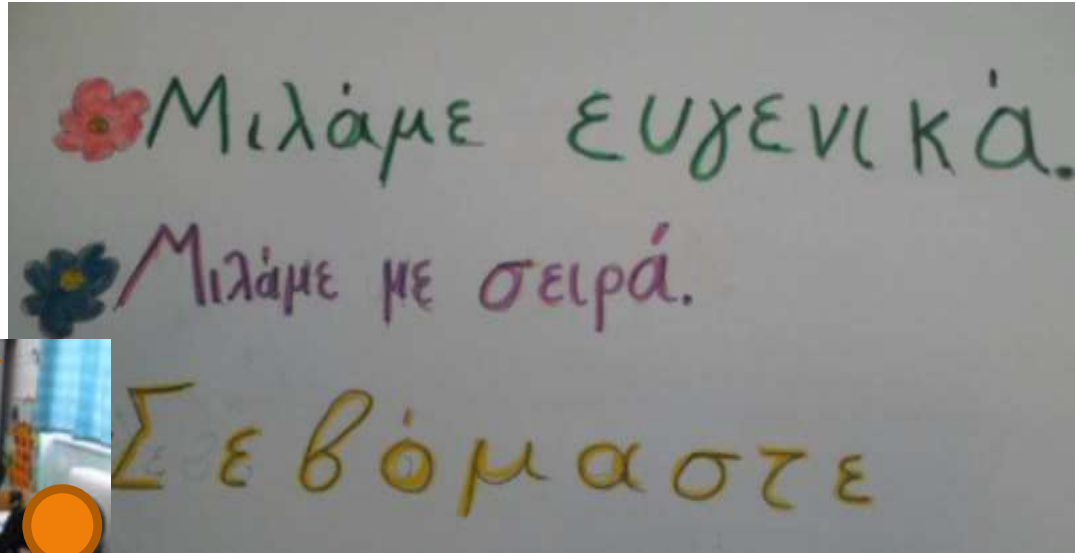 Μιλάμε ευγενικά.
Μιλάμε με σειρά.
Σεβόμαστε